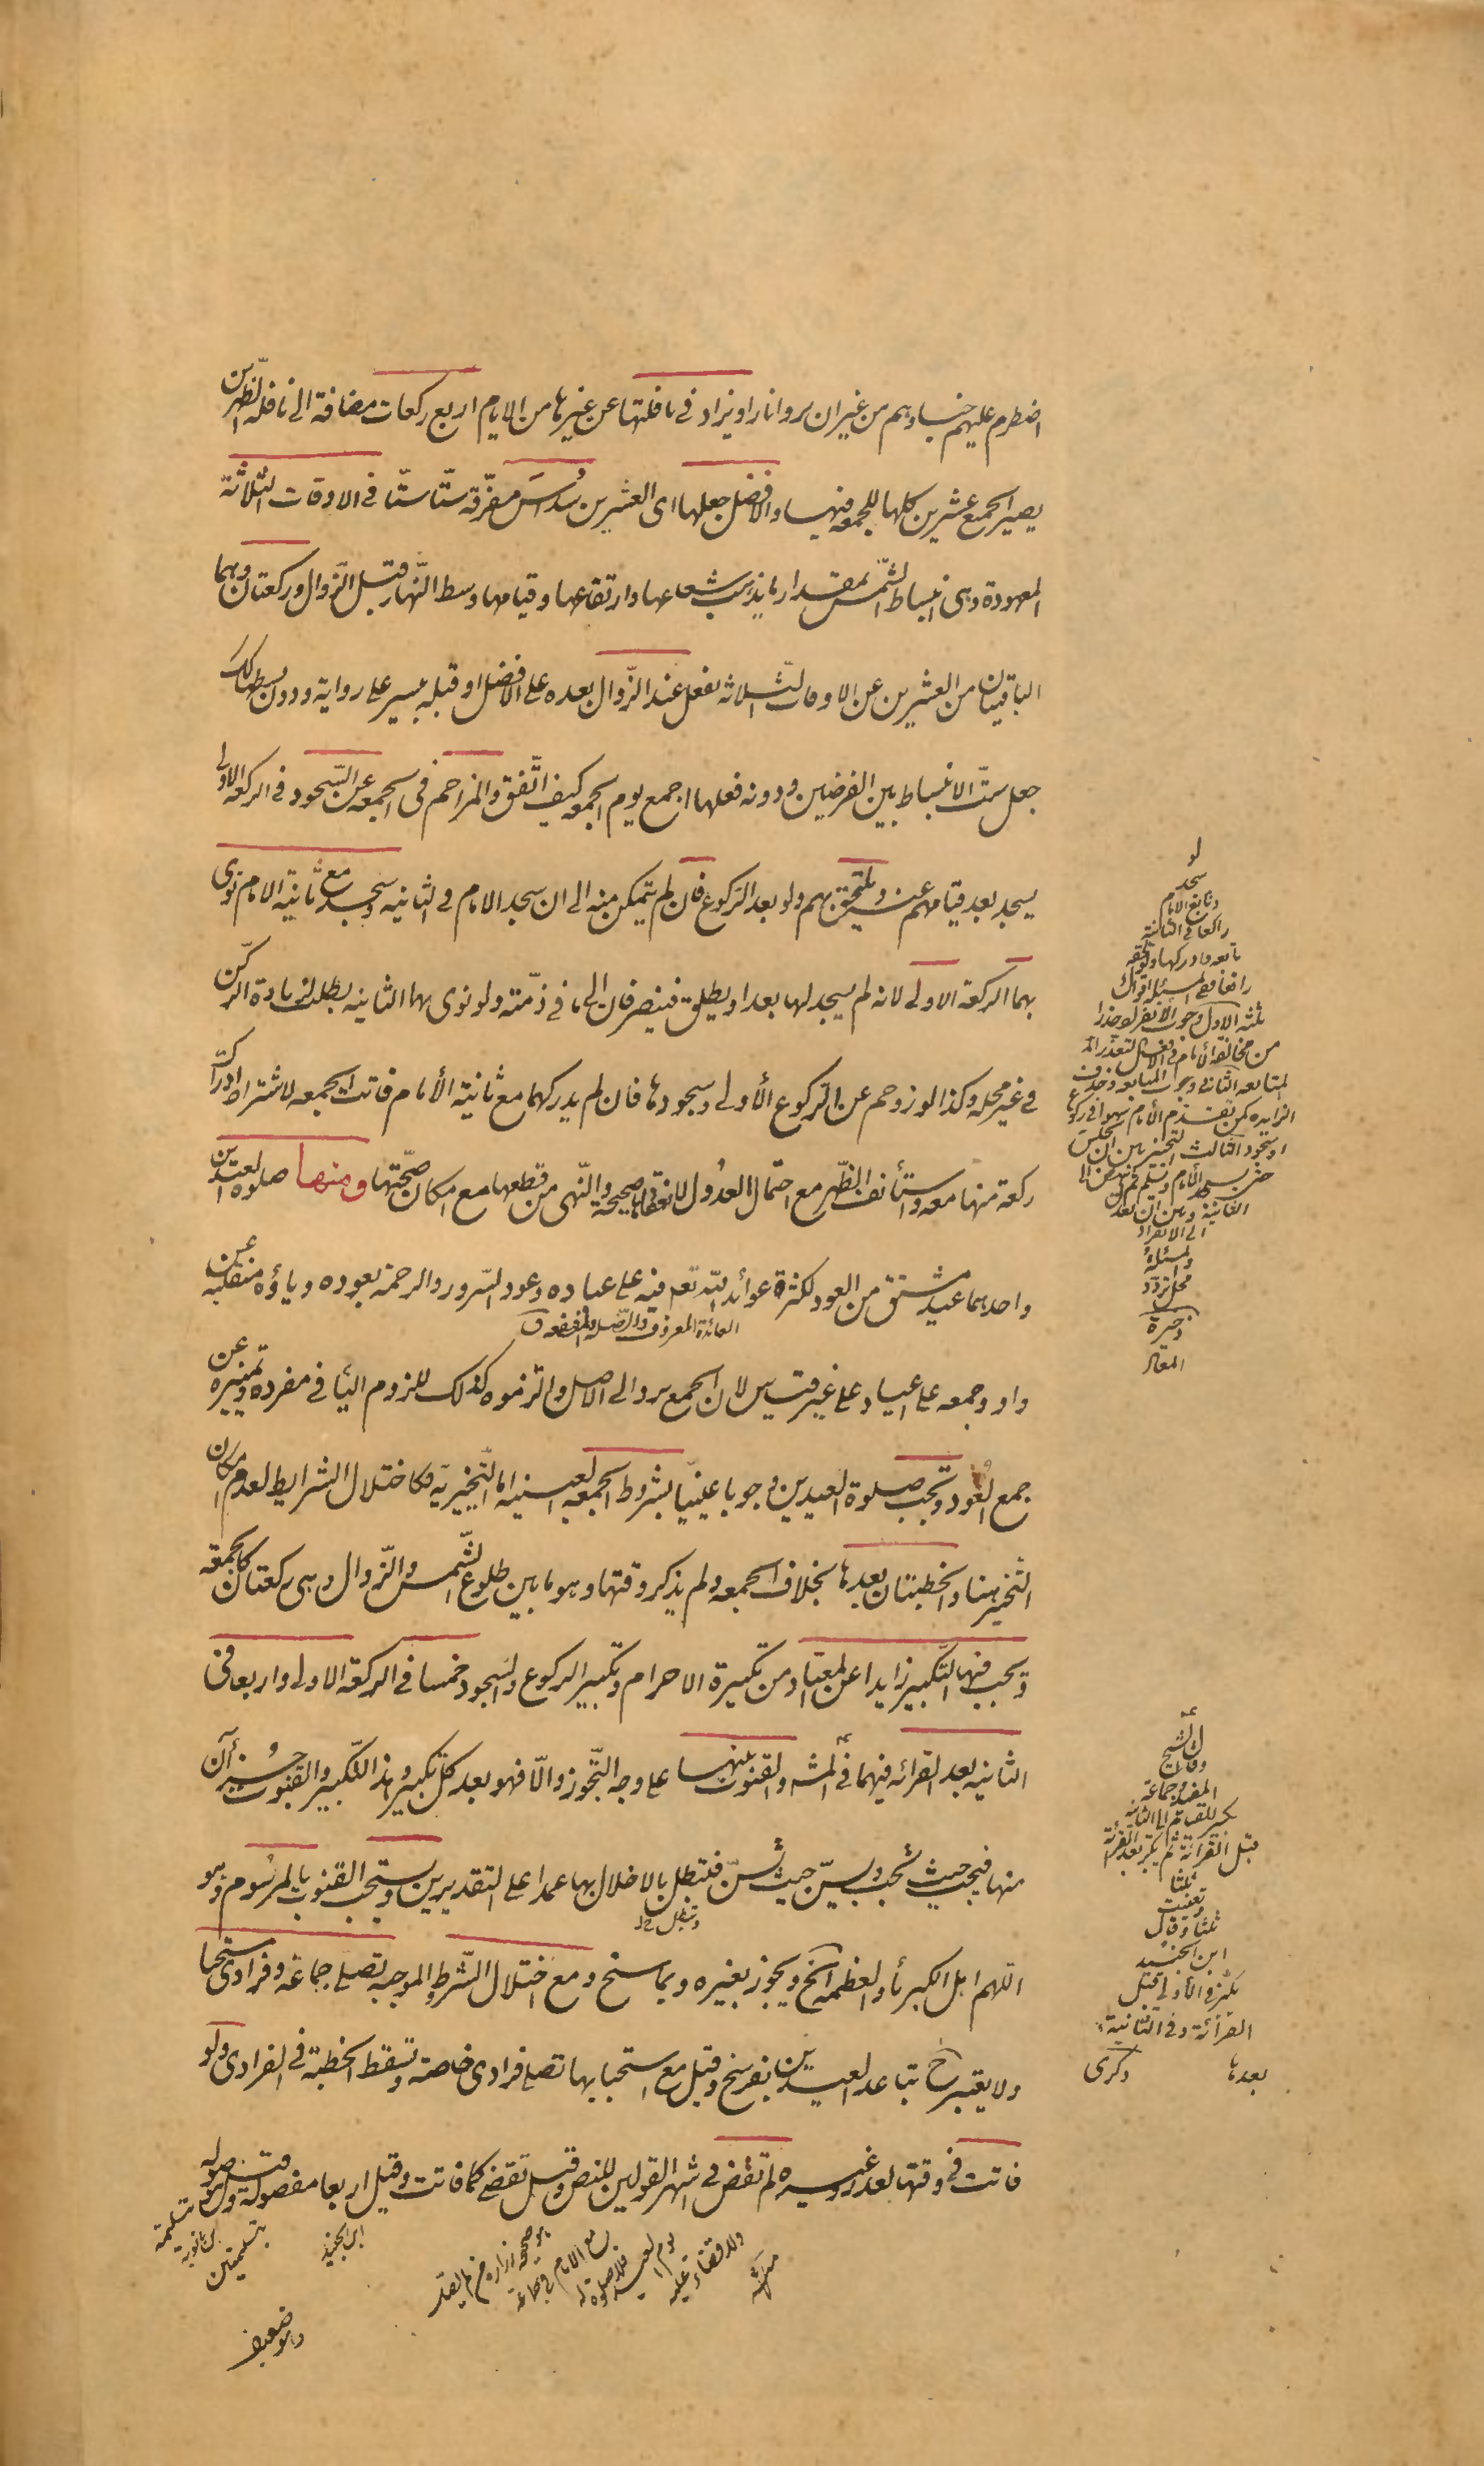 اضطرم عليهم خباؤهم من غير ان يروا نارا ويزاد في نافلتها عن غيرها من الايام اربع ركعات مضافة الى نافلة الظهرين
يصير الجميع عشرين كلها للجمعه فيها والافضل جعلها اى العشرين سُداسَ مفرّقة ستّا ستّا في الاوقات الثلاثة
المعهودة وهى انبساط الشّمس بمقدار ما يذهب شعاعها وارتفاعها وقيامها وسط النّهار قبل الزّوال وركعتان وهما
الباقيتان من العشرين عن الاوقات الثّلاثه تفعل عند الزّوال بعده على الافضل او قبله بيسير على رواية ودون بسطها كذلك
جعل ستّ الانبساط بين الفرضين ودونه فعلها اجمع يوم الجمعه كيف اتّفق والمزاحم في الجمعه عن السّجود في الركعه الاولى
يسجد بعد قيامهم عنه ويلتحق بهم ولو بعد الرّكوع فان لم يتمكن منه الى ان سجد الامام في الثانيه وسجد مع ثانية الامام نوى
بهما الركعة الاولى لانه لم يسجد لها بعد او يطلق فينصرفان الى ما في ذمّته ولو نوى بهما الثانيه بطلت لزيادة الركن
في غير محله وكذا لو زوحم عن الرّكوع الأولى وسجودها فان لم يدركهما مع ثانية الأمام فاتت الجمعه لاشتراط ادراك
ركعة منها معه واستأنف الظّهر مع احتمال العدول لانعقادها صحيحة والنّهى عن قطعها مع امكان صحّتها ومنها صلوة العيدين
واحدهما عيد مشتق من العود لكثرة عوائد اللّه تعم فيه على عباده وعود السّرور والرحمة بعوده وياؤه منقلبة عن
العائدة المعروف والصّله والمنفعه ق
واو وجمعه على اعياد على غير قياس لان الجمع يرد الى الاصل والتزموه كذلك للزوم اليا في مفرده وتميزه عن
جمع العُود وتجب صلوة العيدين وجوبا عينيّا بشروط الجمعه العينيه اما التّخييريّة فكاختلال الشرايط لعدم امكان
التّخيير هنا والخطبتان بعدها بخلاف الجمعه ولم يذكر وقتها وهو ما بين طلوع الشّمس والزّوال وهى ركعتان كالجمعة
ويجب فيها التّكبير زايدا عن المعتاد من تكبيرة الاحرام وتكبير الركوع والسّجود خمسا في الركعة الاولى واربعا في
الثانيه بعد القرائه فيهما في المشه والقنوت بينها على وجه التّجوز والّا فهو بعد كل تكبير وهذا التّكبير والقنوت جزءان
منها فيجب حيث تجب ويسنّ حيث تسنّ فتبطل بالاخلال بها عمدا على التقديرين ويستحب القنوت بالمرسُوم وهو
اللهم اهل الكبرياء والعظمه الخ ويجوز بغيره وبما سنح ومع اختلال الشّرط الموجبه تصلى جماعة وفرادى مستحبا
ولا يعتبر ح تباعد العيدين بفرسخ وقيل مع استحبابها تصلى فرادى خاصة وتسقط الخطبة في الفرادى ولو
فاتت في وقتها لعذر وغيره لم تقض في اشهر القولين للنص وقيل تقضى كما فاتت وقيل اربعا مفصولة وقيل موصوله
بتسليمتين
ابن الجنيد
وهو ضعيف
لو
سجد
وتابع الامام
راكعا في الثانية
ثلثة الاول وجوب الانفراد حذرا
من مخالفة الأمام في الافعال لتعذر
المتابعه الثاني وجوب المتابعه وحذف
الزايده كمن تقدم الأمام سهوا في ركوع
او سجود الثالث التخيير بين ان يجلس
حتى يسجد الأمام ويسلم ثم ينهض الى
الثانية وبين ان يعدل
الى الانفراد
والمسئلة
محل تردد
وقال الشيخ
المفيد وجماعة
يكبر للقيام الى الثانية
قبل القرائة ثم يكبر بعد القرائة
ثلثا
ويقنت
ثلثا وقال
ابن الجنيد
يكبر في الأولى قبل
القرائة وفي الثانية
بعدها ذكرى